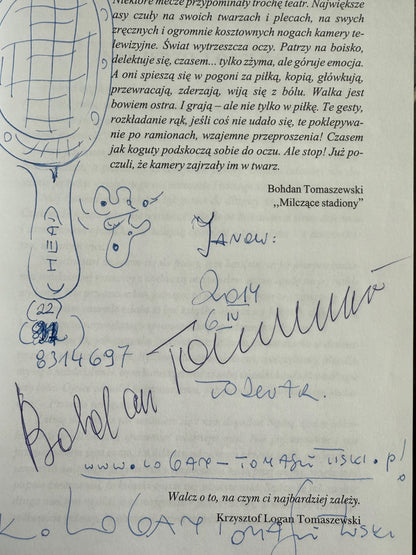 Niektóre mecze przypominały trochę teatr. Największe
asy czuły na swoich twarzach i plecach, na swych
zręcznych i ogromnie kosztownych nogach kamery te-
lewizyjne. Świat wytrzeszcza oczy. Patrzy na boisko,
delektuje się, czasem... tylko zżyma, ale góruje emocja.
A oni spieszą się w pogoni za piłką, kopią, główkują,
przewracają, zderzają, wiją się z bólu. Walka jest
bowiem ostra. I grają – ale nie tylko w piłkę. Te gesty,
rozkładanie rąk, jeśli coś nie udało się, te poklepywa-
nie po ramionach, wzajemne przeproszenia! Czasem
jak koguty podskoczą sobie do oczu. Ale stop! Już po-
czuli, że kamery zajrzały im w twarz.
Bohdan Tomaszewski
,,Milczące stadiony”
HEAD
JANOW:
2014
6 IV
(22)
8314697
Bohdan Tomaszewski
www.LOGAN-TOMASZEWSKI.pl
Walcz o to, na czym ci najbardziej zależy.
Krzysztof Logan Tomaszewski
K. LOGAN TOMASZEWSKI